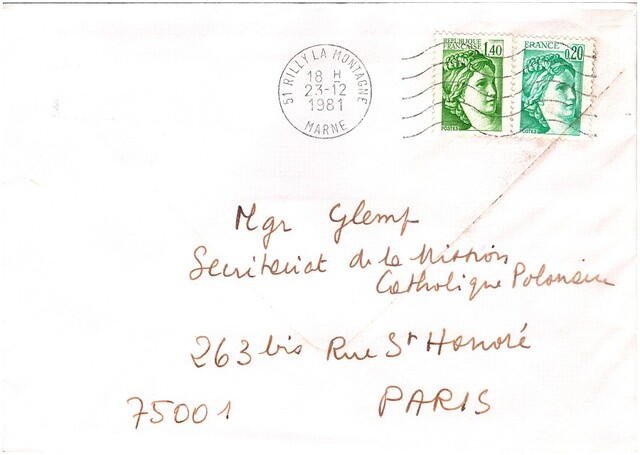 51 RILLY LA MONTAGNE
18 H
23-12
1981
MARNE
REPUBLIQUE
FRANÇAISE
1,40
POSTES
FRANCE
0,20
POSTES
Mgr Glemp
Secrétariat de la Mission
Catholique Polonaise
263 bis Rue St Honoré
75001 PARIS